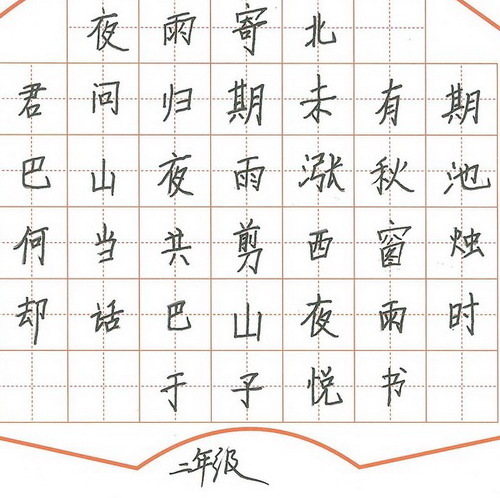 夜雨寄北
君问归期未有期
巴山夜雨涨秋池
何当共剪西窗烛
却话巴山夜雨时
于子悦书
二年级